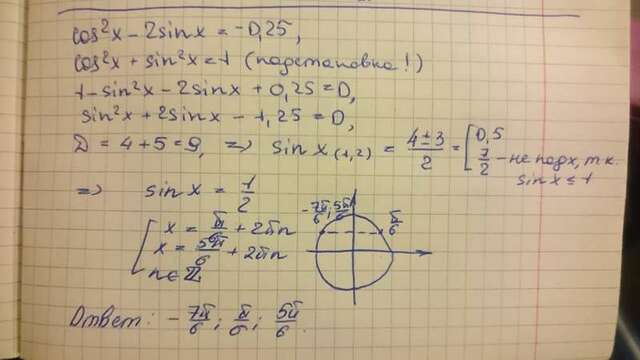 cos²x - 2sinx = -0,25,
cos²x + sin²x = 1 (подстановка!)
1 - sin²x - 2sinx + 0,25 = 0,
sin²x + 2sinx - 1,25 = 0,
D = 4 + 5 = 9, => sin x (1,2) = (4 ± 3)/2 = [ 0,5
7/2 - не подх, т.к. sinx ≤ 1
=> sin x = 1/2
[ x = π/6 + 2πn
x = 5π/6 + 2πn
n ∈ ℤ
-7π/6; 5π/6
π/6
Ответ: -7π/6; π/6; 5π/6.